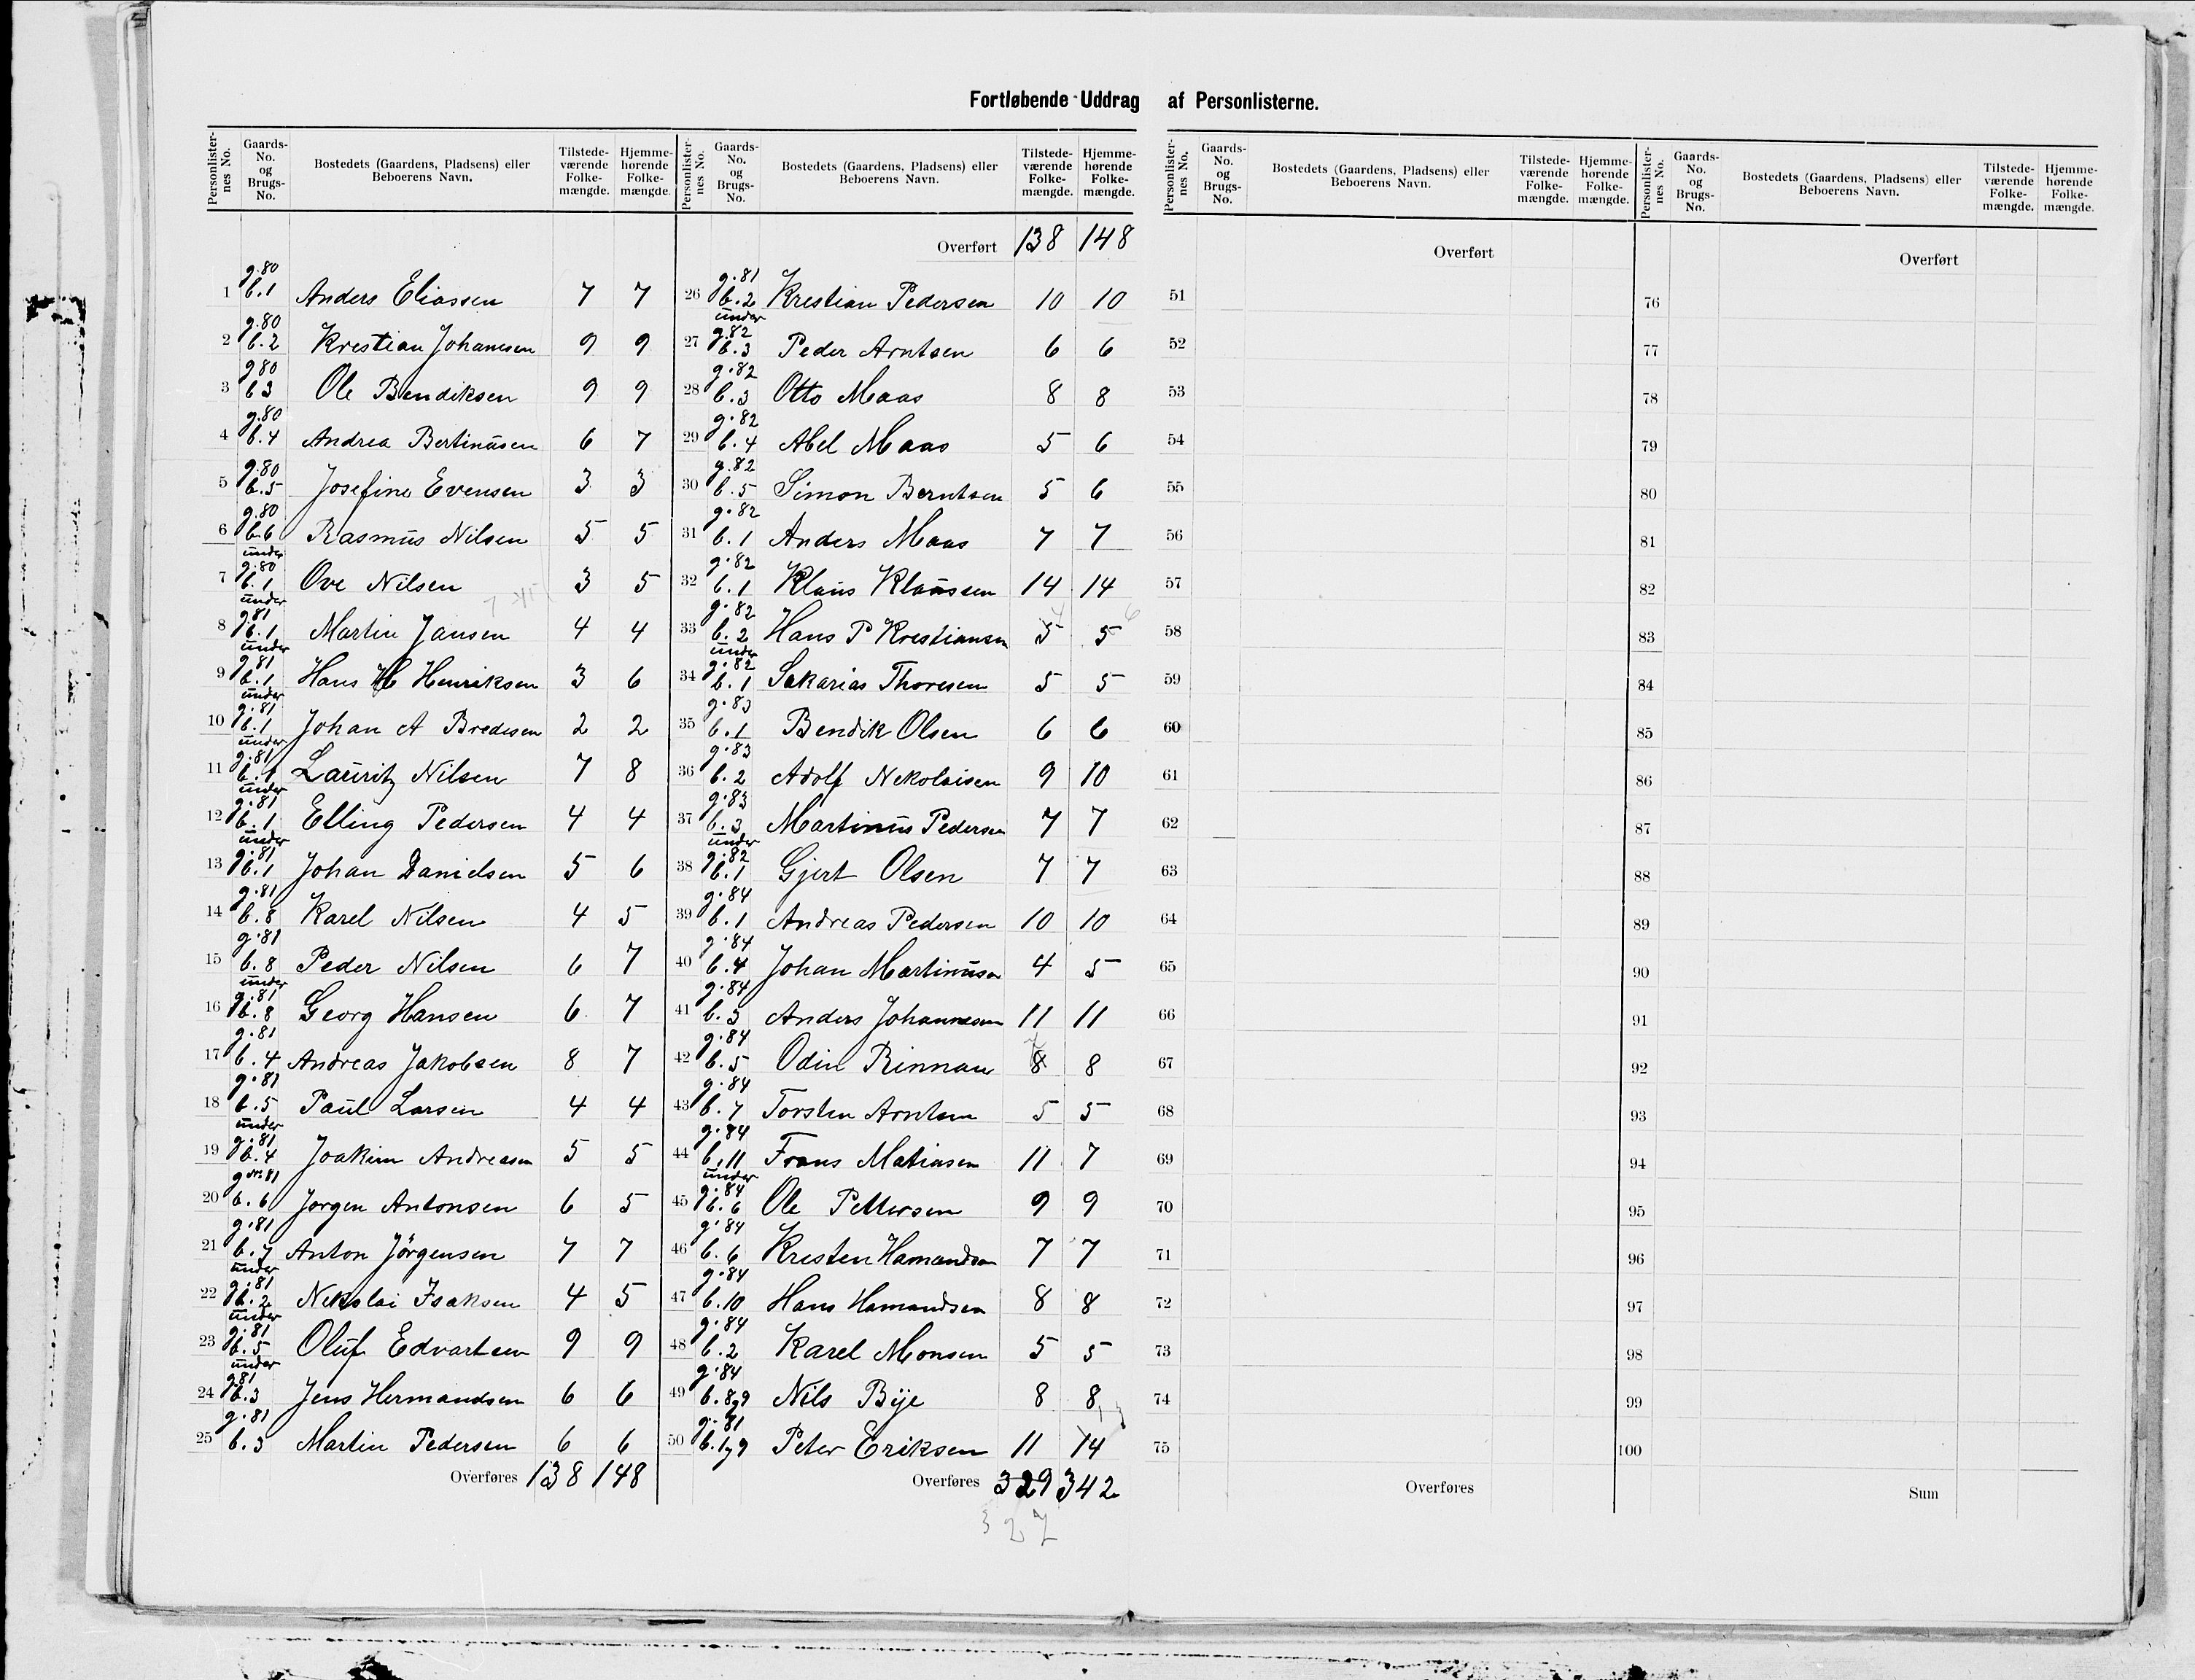 Fortløbende Uddrag af Personlisterne.
Personlisternes No. Gaards-No. og Brugs-No. Bostedets (Gaardens, Pladsens) eller Beboerens Navn. Tilstedeværende Folkemængde. Hjemmehørende Folkemængde.
1 g.80 b.1 Anders Eliassen 7 7
2 g.80 b.2 Krestian Johansen 9 9
3 g80 b3 Ole Bendiksen 9 9
4 g.80 b.4 Andrea Bertinusen 6 7
5 g.80 b.5 Josefine Evensen 3 3
6 g.80 b.6 Rasmus Nilsen 5 5
7 under g.80 b.1 Ove Nilsen 3 5
8 under g81 b.1 Martin Jansen 4 4
9 under g81 b.1 Hans H Henriksen 3 6
10 under g.81 b.1 Johan A Bredesen 2 2
11 under g.81 b.1 Lauritz Nilsen 7 8
12 under g.81 b.1 Elling Pedersen 4 4
13 under g.81 b.1 Johan Danielsen 5 6
14 g.81 b.8 Karel Nilsen 4 5
15 g.81 b.8 Peder Nilsen 6 7
16 under g.81 b.8 Georg Hansen 6 7
17 g.81 b.4 Andreas Jakobsen 8 7
18 g.81 b.5 Paul Larsen 4 4
19 under g.81 b.4 Joakim Andreasen 5 5
20 g№81 b.6 Jørgen Antonsen 6 5
21 g.81 b.7 Anton Jørgensen 7 7
22 under g.81 b.2 Nikolai Isaksen 4 5
23 under g.81 b.5 Oluf Edvartsen 9 9
24 under g81 b.3 Jens Hermandsen 6 6
25 g.81 b.3 Martin Pedersen 6 6
Overføres 138 148
Personlisternes No. Gaards-No. og Brugs-No. Bostedets (Gaardens, Pladsens) eller Beboerens Navn. Tilstedeværende Folkemængde. Hjemmehørende Folkemængde.
Overført 138 148
26 g.81 b.2 Krestian Pedersen 10 10
27 under g.82 b.3 Peder Arntsen 6 6
28 g.82 b.3 Otto Maas 8 8
29 g.82 b.4 Abel Maas 5 6
30 g.82 b.5 Simon Berntsen 5 6
31 g.82 b.1 Anders Maas 7 7
32 g.82 b.1 Klaus Klaussen 14 14
33 g.82 b.2 Hans P Krestiansen 5 5
34 under g.82 b.1 Sakarias Thoresen 5 5
35 g.83 b.1 Bendik Olsen 6 6
36 g.83 b.2 Adolf Nekolaisen 9 10
37 g.83 b.3 Martinus Pedersen 7 7
38 under g.82 b.1 Gjert Olsen 7 7
39 g.84 b.1 Andreas Pedersen 10 10
40 g.84 b.4 Johan Martinusen 4 5
41 g.84 b.3 Anders Johannesen 11 11
42 g.84 b.5 Odin Rinnan 8 8
43 g.84 b.7 Torsten Arntsen 5 5
44 g.84 b.11 Frans Matiasen 11 7
45 under g.84 b.6 Ole Pettersen 9 9
46 g.84 b.6 Kresten Hamandsen 7 7
47 g.84 b.10 Hans Hamandsen 8 8
48 g.84 b.2 Karel Monsen 5 5
49 g.84 b.8,9 Nils Bye 8 8
50 g.81 b.1,9 Peter Eriksen 11 14
Overføres 329 342
327
Personlisternes No. Gaards-No. og Brugs-No. Bostedets (Gaardens, Pladsens) eller Beboerens Navn. Tilstedeværende Folkemængde. Hjemmehørende Folkemængde.
Overført
51
52
53
54
55
56
57
58
59
60
61
62
63
64
65
66
67
68
69
70
71
72
73
74
75
Overføres
Personlisternes No. Gaards-No. og Brugs-No. Bostedets (Gaardens, Pladsens) eller Beboerens Navn. Tilstedeværende Folkemængde. Hjemmehørende Folkemængde.
Overført
76
77
78
79
80
81
82
83
84
85
86
87
88
89
90
91
92
93
94
95
96
97
98
99
100
Sum